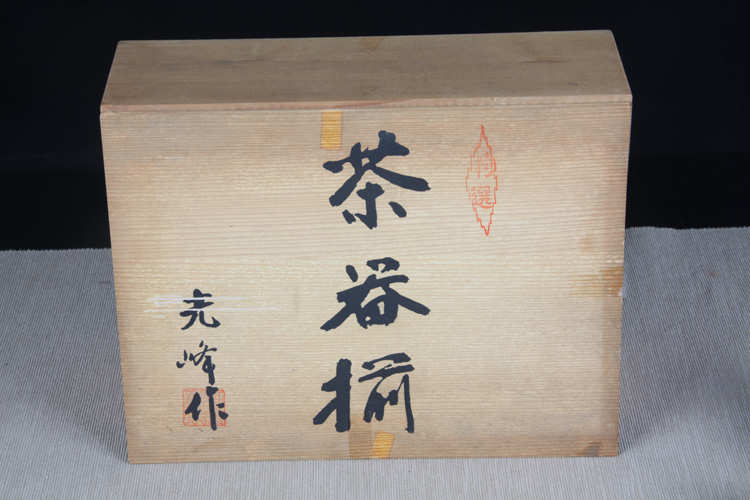 特選
茶器揃
尭峰作